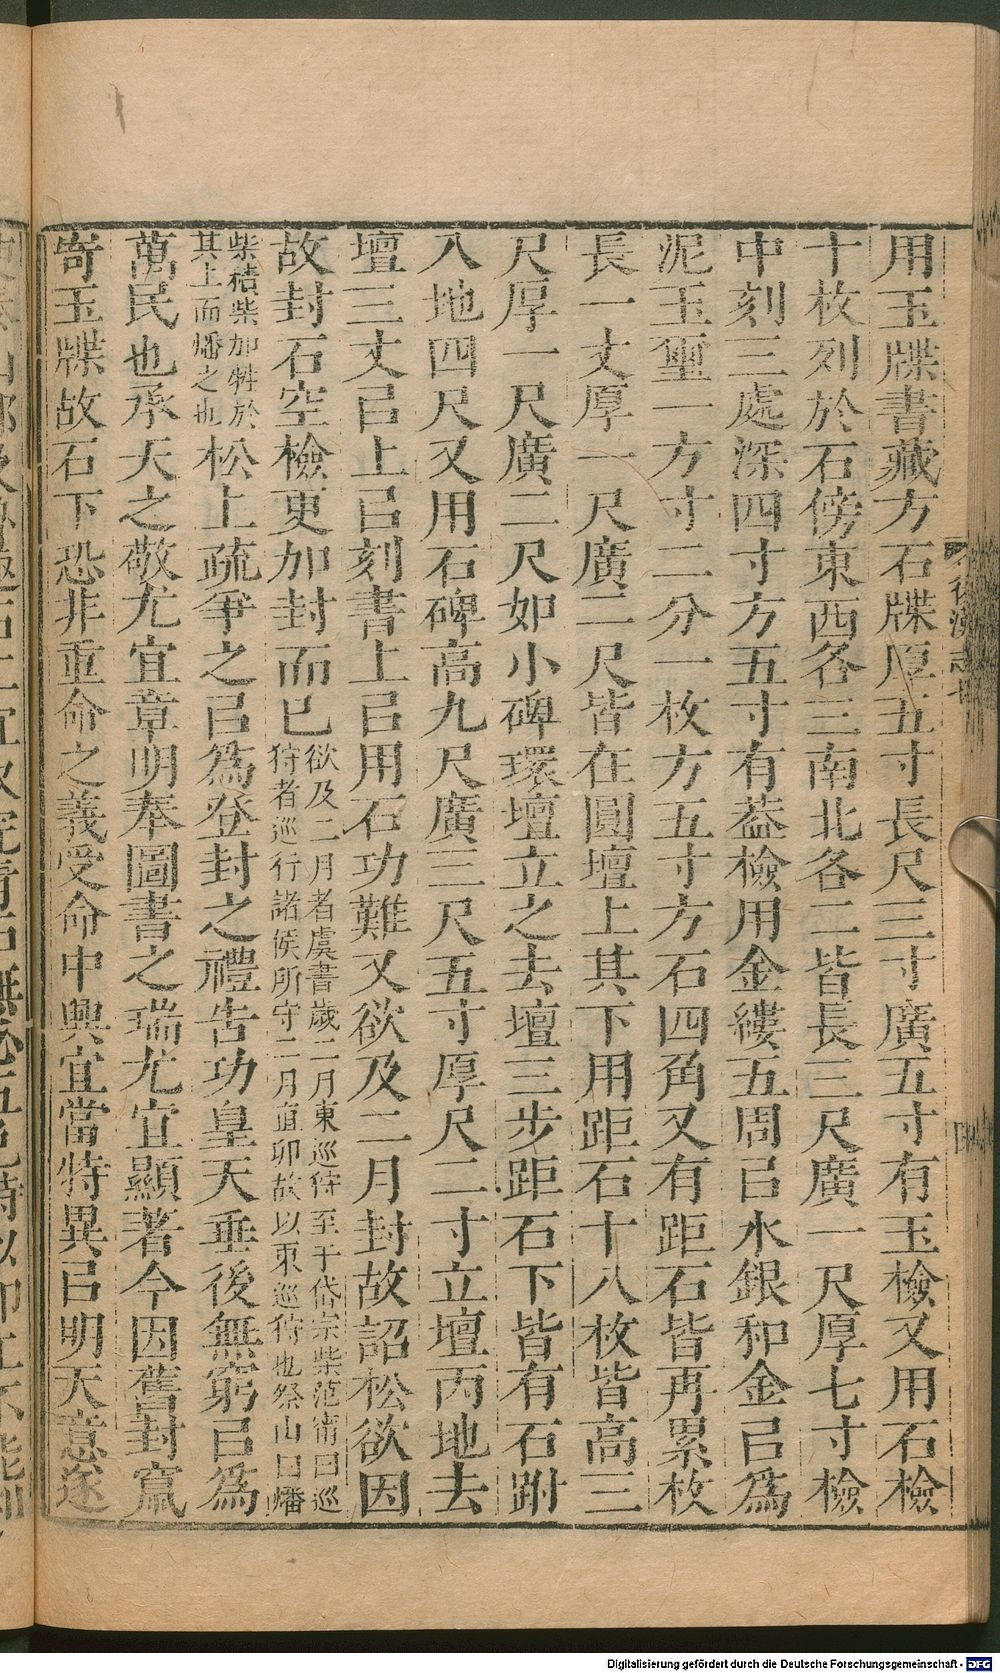 用玉牒書藏方石牒厚五寸長尺三寸廣五寸有玉檢又用石檢
十枚列於石傍東西各三南北各二皆長三尺廣一尺厚七寸檢
中刻三處深四寸方五寸有葢檢用金縷五周㠯水銀和金㠯爲
泥玉璽一方寸二分一枚方五寸方石四角又有距石皆再累枚
長一丈厚一尺廣二尺皆在圓壇上其下用距石十八枚皆高三
尺厚一尺廣二尺如小碑環壇立之去壇三步距石下皆有石跗
入地四尺又用石碑高九尺廣三尺五寸厚尺二寸立壇丙地去
壇三丈㠯上㠯刻書上㠯用石功難又欲及二月封故詔松欲因
故封石空檢更加封而已
欲及二月者虞書歲二月東巡狩至于岱宗柴范甯曰巡
狩者巡行諸侯所守二月直卯故以東巡狩也祭山曰燔
柴積柴加牲於
其上而燔之也
松上疏爭之㠯爲登封之禮告功皇天垂後無窮㠯爲
萬民也承天之敬尤宜章明奉圖書之瑞尤宜顯著今因舊封竄
寄玉牒故石下恐非重命之義受命中興宜當特異㠯明天意遂
後漢志七
Digitalisierung gefördert durch die Deutsche Forschungsgemeinschaft - DFG